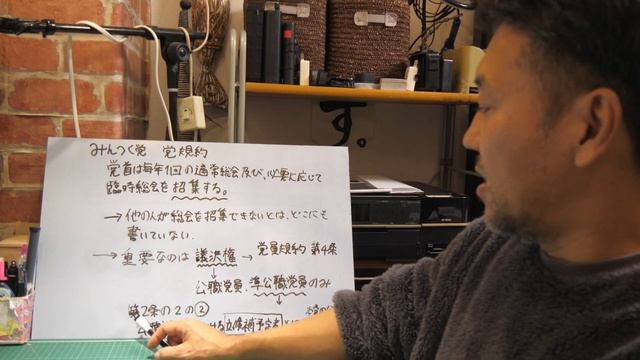 みんつく党 党規約
党首は毎年1回の通常総会及び、必要に応じて
臨時総会を招集する。
→他の人が総会を招集できないとは、どこにも
書いていない。
→重要なのは 議決権 → 党員規約 第4条
↓
公職党員、準公職党員のみ
↓
第2条の2の②
ける立候補予定者
す。